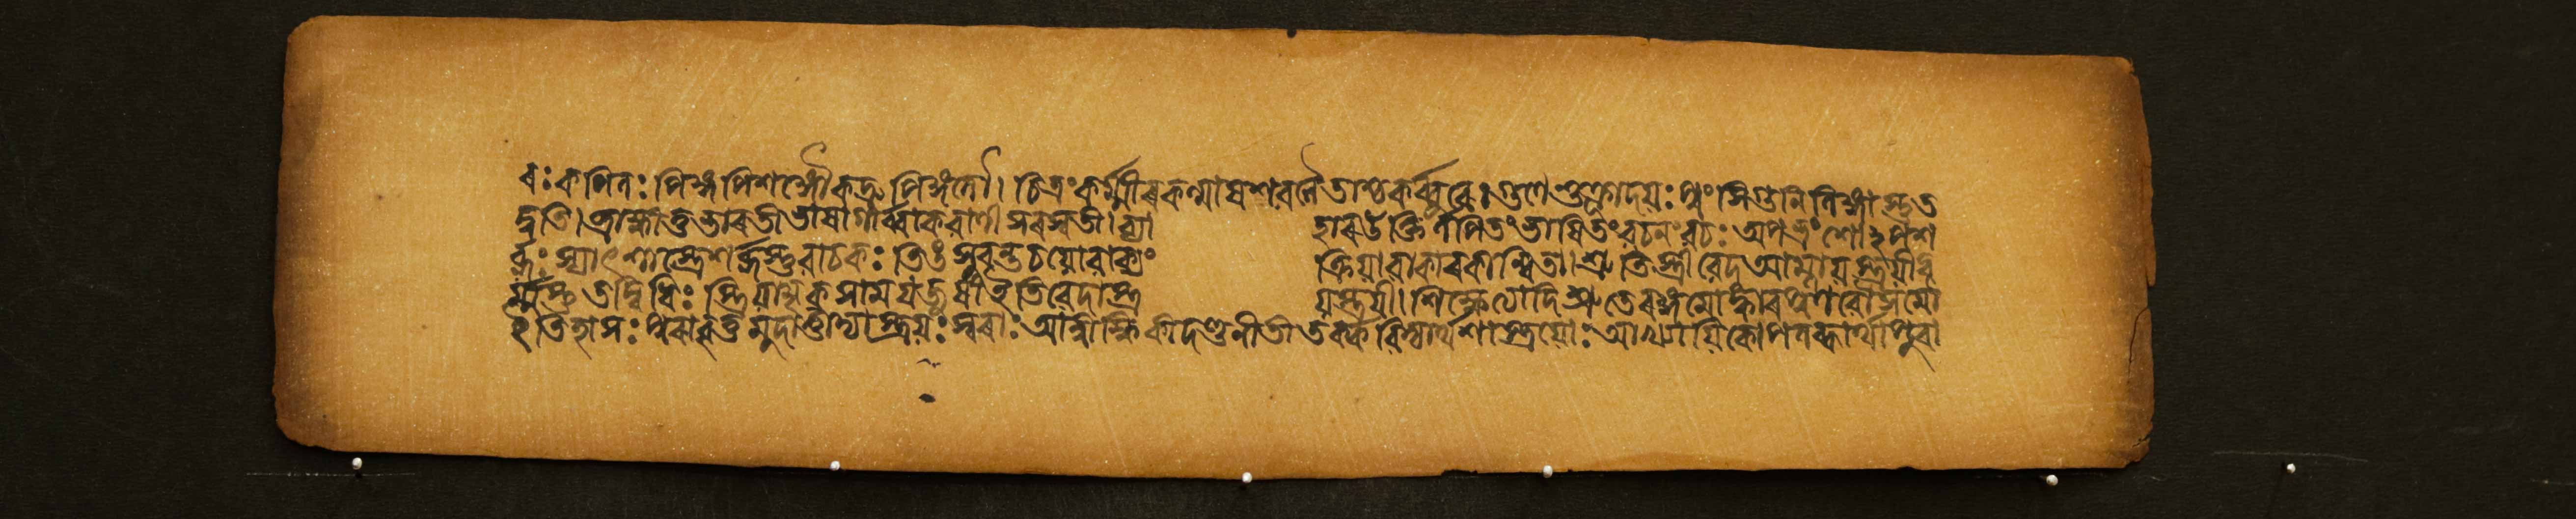 ৰঃ কপিলঃ পিঙ্গপিশঙ্গৌকদ্ৰুপিঙ্গলৌ। চিত্ৰং কৰ্ম্মীৰকল্মাষশবলৈতাশ্চকৰ্ব্বুৰে। গুণেশুক্লাদয়ঃ পুংসিগুনিলিঙ্গাস্তুত
দ্বতি। ব্ৰাহ্মীতুভাৰতীভাষাগীৰ্ব্বাকবাণীসৰস্বতী। ব্যা হাৰউক্তিৰ্লপিতংভাষিতংবচনংবচঃ অপভ্ৰংশোঽপশ
ব্দঃ স্যাৎশাস্ত্ৰেশব্দস্তুবাচকঃ তিঙসুবন্তচয়োবাক্যং ক্ৰিয়াবাকাৰকান্বিতা। শ্ৰুতিস্ত্ৰীবেদআম্নায়স্ত্ৰয়ীধ
ৰ্ম্মস্তুতদ্বিধিঃ স্ত্ৰিয়ামৃকসামযজুষীইতিবেদাস্ত্ৰ য়স্ত্ৰয়ী। শিক্ষেত্যাদিশ্ৰুতেৰঙ্গমোঙ্কাৰপ্ৰণবৌসমৌ
ইতিহাসঃ পুৰাবৃত্তমুদাত্তাদ্যাস্ত্ৰয়ঃ স্বৰাঃ আন্বীক্ষিকীদণ্ডনীতীতৰ্কবিদ্যাৰ্থশাস্ত্ৰয়োঃ আখ্যায়িকোপলব্ধাৰ্থাপুৰা